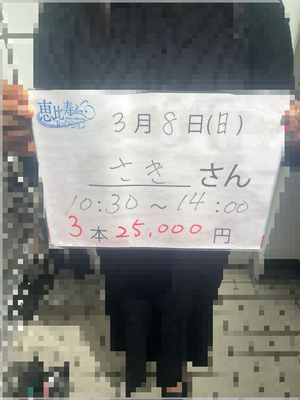 恵比寿
3月8日(日)
さき さん
10:30～14:00
3本 25,000円